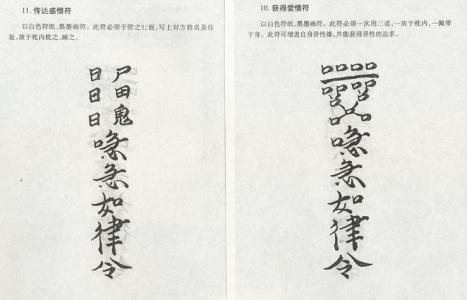 11. 传达感情符
以白色符纸,黑墨画符。此符必须于符之 面,写上对方姓名及住
址,放于枕内枕之,睡之。
尸田鬼
日日日
唸急如律令
10. 获得爱情符
以白色符纸,黑墨画符。此符必须一次用二道,一放于枕内,一佩带
于身。此符可增进自身异性缘,并能获得异性的追求。
急如律令